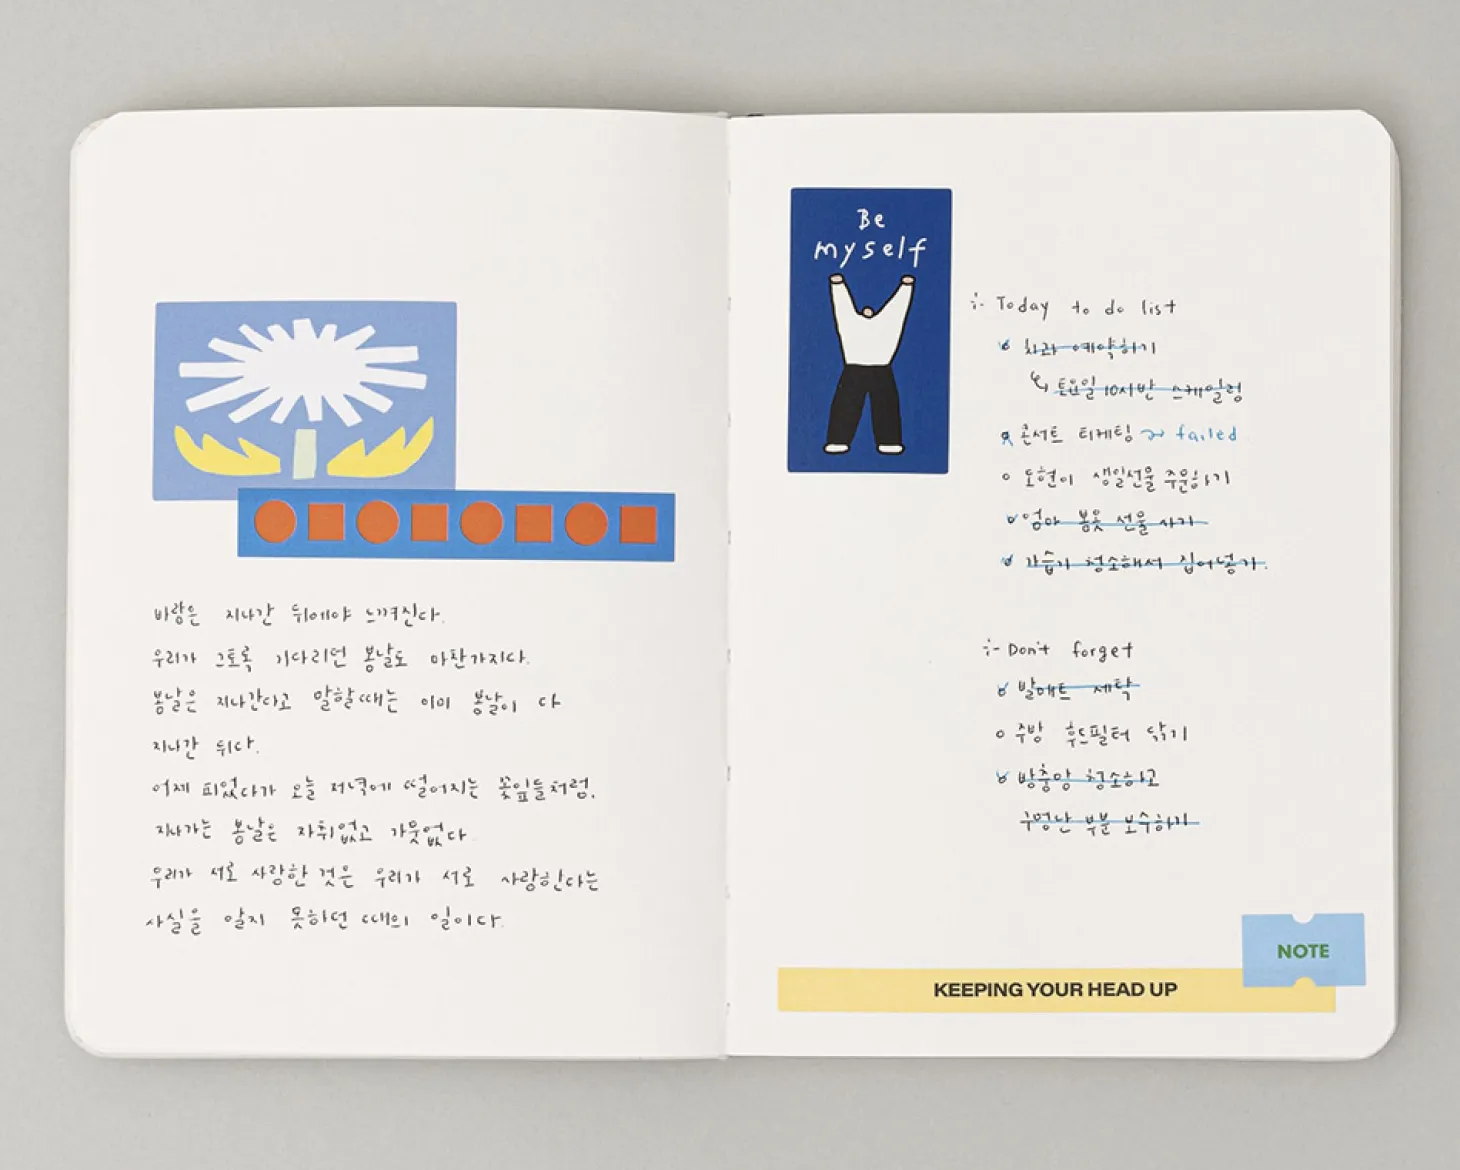 바람은 지나간 뒤에야 느껴진다.
우리가 그토록 기다리던 봄날도 마찬가지다.
봄날은 지나간다고 말할때는 이미 봄날이 다
지나간 뒤다.
어제 피었다가 오늘 저녁에 떨어지는 꽃잎들처럼.
지나가는 봄날은 자취없고 가뭇없다.
우리가 서로 사랑한 것은 우리가 서로 사랑한다는
사실을 알지 못하던 때의 일이다.
Be
myself
Today to do list
치과 예약하기
토요일 10시반 스케일링
콘서트 티케팅 ~> failed
도현이 생일선물 주문하기
엄마 봄옷 선물 사기
가습기 청소해서 집어넣기.
Don't forget
발매트 세탁
주방 후드필터 닦기
방충망 청소하고
구멍난 부분 보수하기
NOTE
KEEPING YOUR HEAD UP